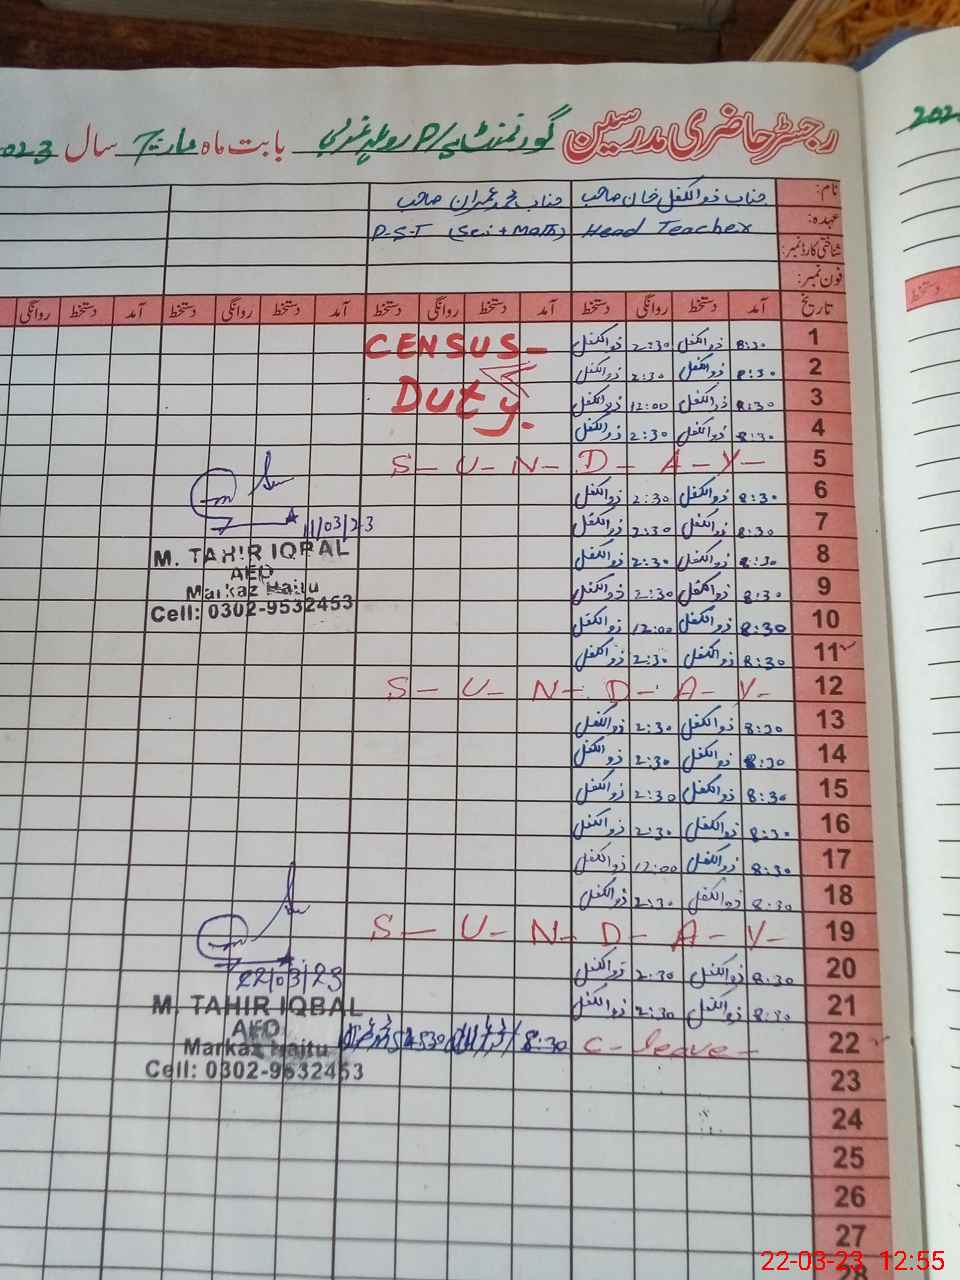 رجسٹر حاضری مدرسین گورنمنٹ P/S بابت ماہ مارچ سال 2023
نام: جناب ذوالکفل خان صاحب جناب محمد عمران صاحب
عہدہ: Head Teacher P.S.T (Sci + Math)
شناختی کارڈ نمبر:
فون نمبر:
تاریخ آمد دستخط روانگی دستخط آمد دستخط روانگی دستخط آمد دستخط روانگی دستخط آمد دستخط روانگی
1 8:30 ذوالکفل 2:30 ذوالکفل CENSUS-
2 8:30 ذوالکفل 2:30 ذوالکفل
3 8:30 ذوالکفل 12:00 ذوالکفل Duty.
4 8:30 ذوالکفل 2:30 ذوالکفل
5 S-U-N-D-A-Y-
6 8:30 ذوالکفل 2:30 ذوالکفل
7 8:30 ذوالکفل 2:30 ذوالکفل
11/03/23
8 8:30 ذوالکفل 2:30 ذوالکفل
M. TAHIR IQBAL
AEO
9 8:30 ذوالکفل 2:30 ذوالکفل
Markaz Haitu
Cell: 0302-9532453
10 8:30 ذوالکفل 12:00 ذوالکفل
11 8:30 ذوالکفل 2:30 ذوالکفل
12 S-U-N-D-A-Y-
13 8:30 ذوالکفل 2:30 ذوالکفل
14 8:30 ذوالکفل 2:30 ذوالکفل
15 8:30 ذوالکفل 2:30 ذوالکفل
16 8:30 ذوالکفل 2:30 ذوالکفل
17 8:30 ذوالکفل 12:00 ذوالکفل
18 8:30 ذوالکفل 2:30 ذوالکفل
19 S-U-N-D-A-Y-
20 8:30 ذوالکفل 2:30 ذوالکفل
22/03/23
21 8:30 ذوالکفل 2:30 ذوالکفل
M. TAHIR IQBAL
AEO
22 C-leave- 8:30
Markaz Haitu
Cell: 0302-9532453
23
24
25
26
27
28
22-03-23 12:55
202
دستخط